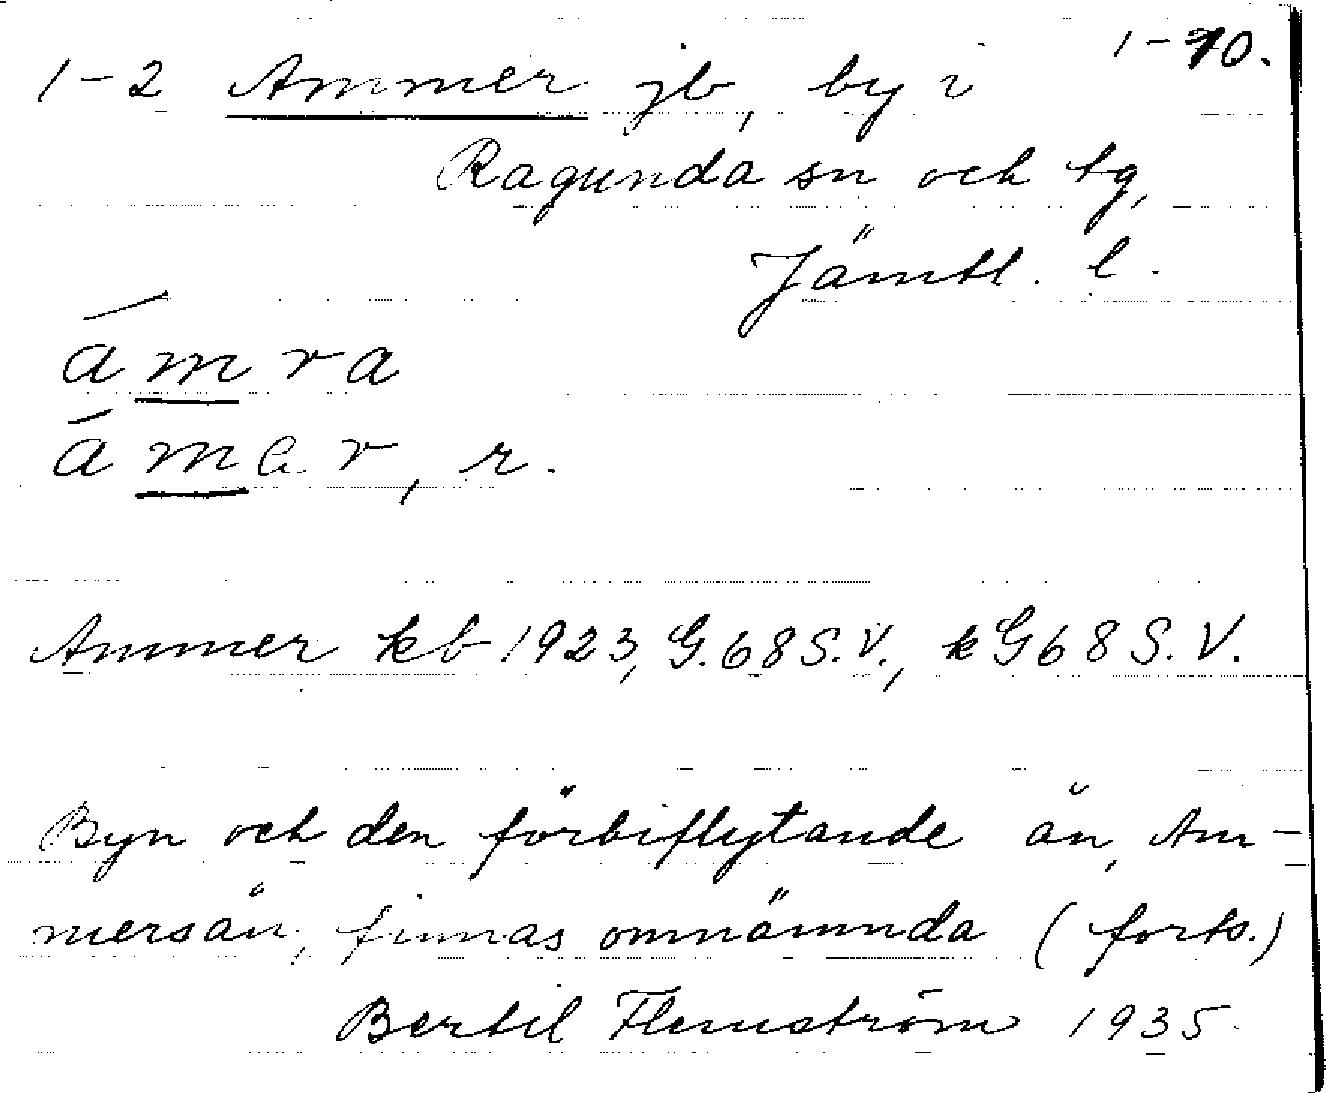 1-10.
1-2 Ammer jb, by i
Ragunda sn och tg,
Jämtl. l.
ámra
ámar, r.
Ammer kb 1923, G.68 S.V., kG68 S.V.
Byn och den förbiflytande ån, Am-
mersån, finnas omnämnda (forts.)
Bertil Flemström 1935.